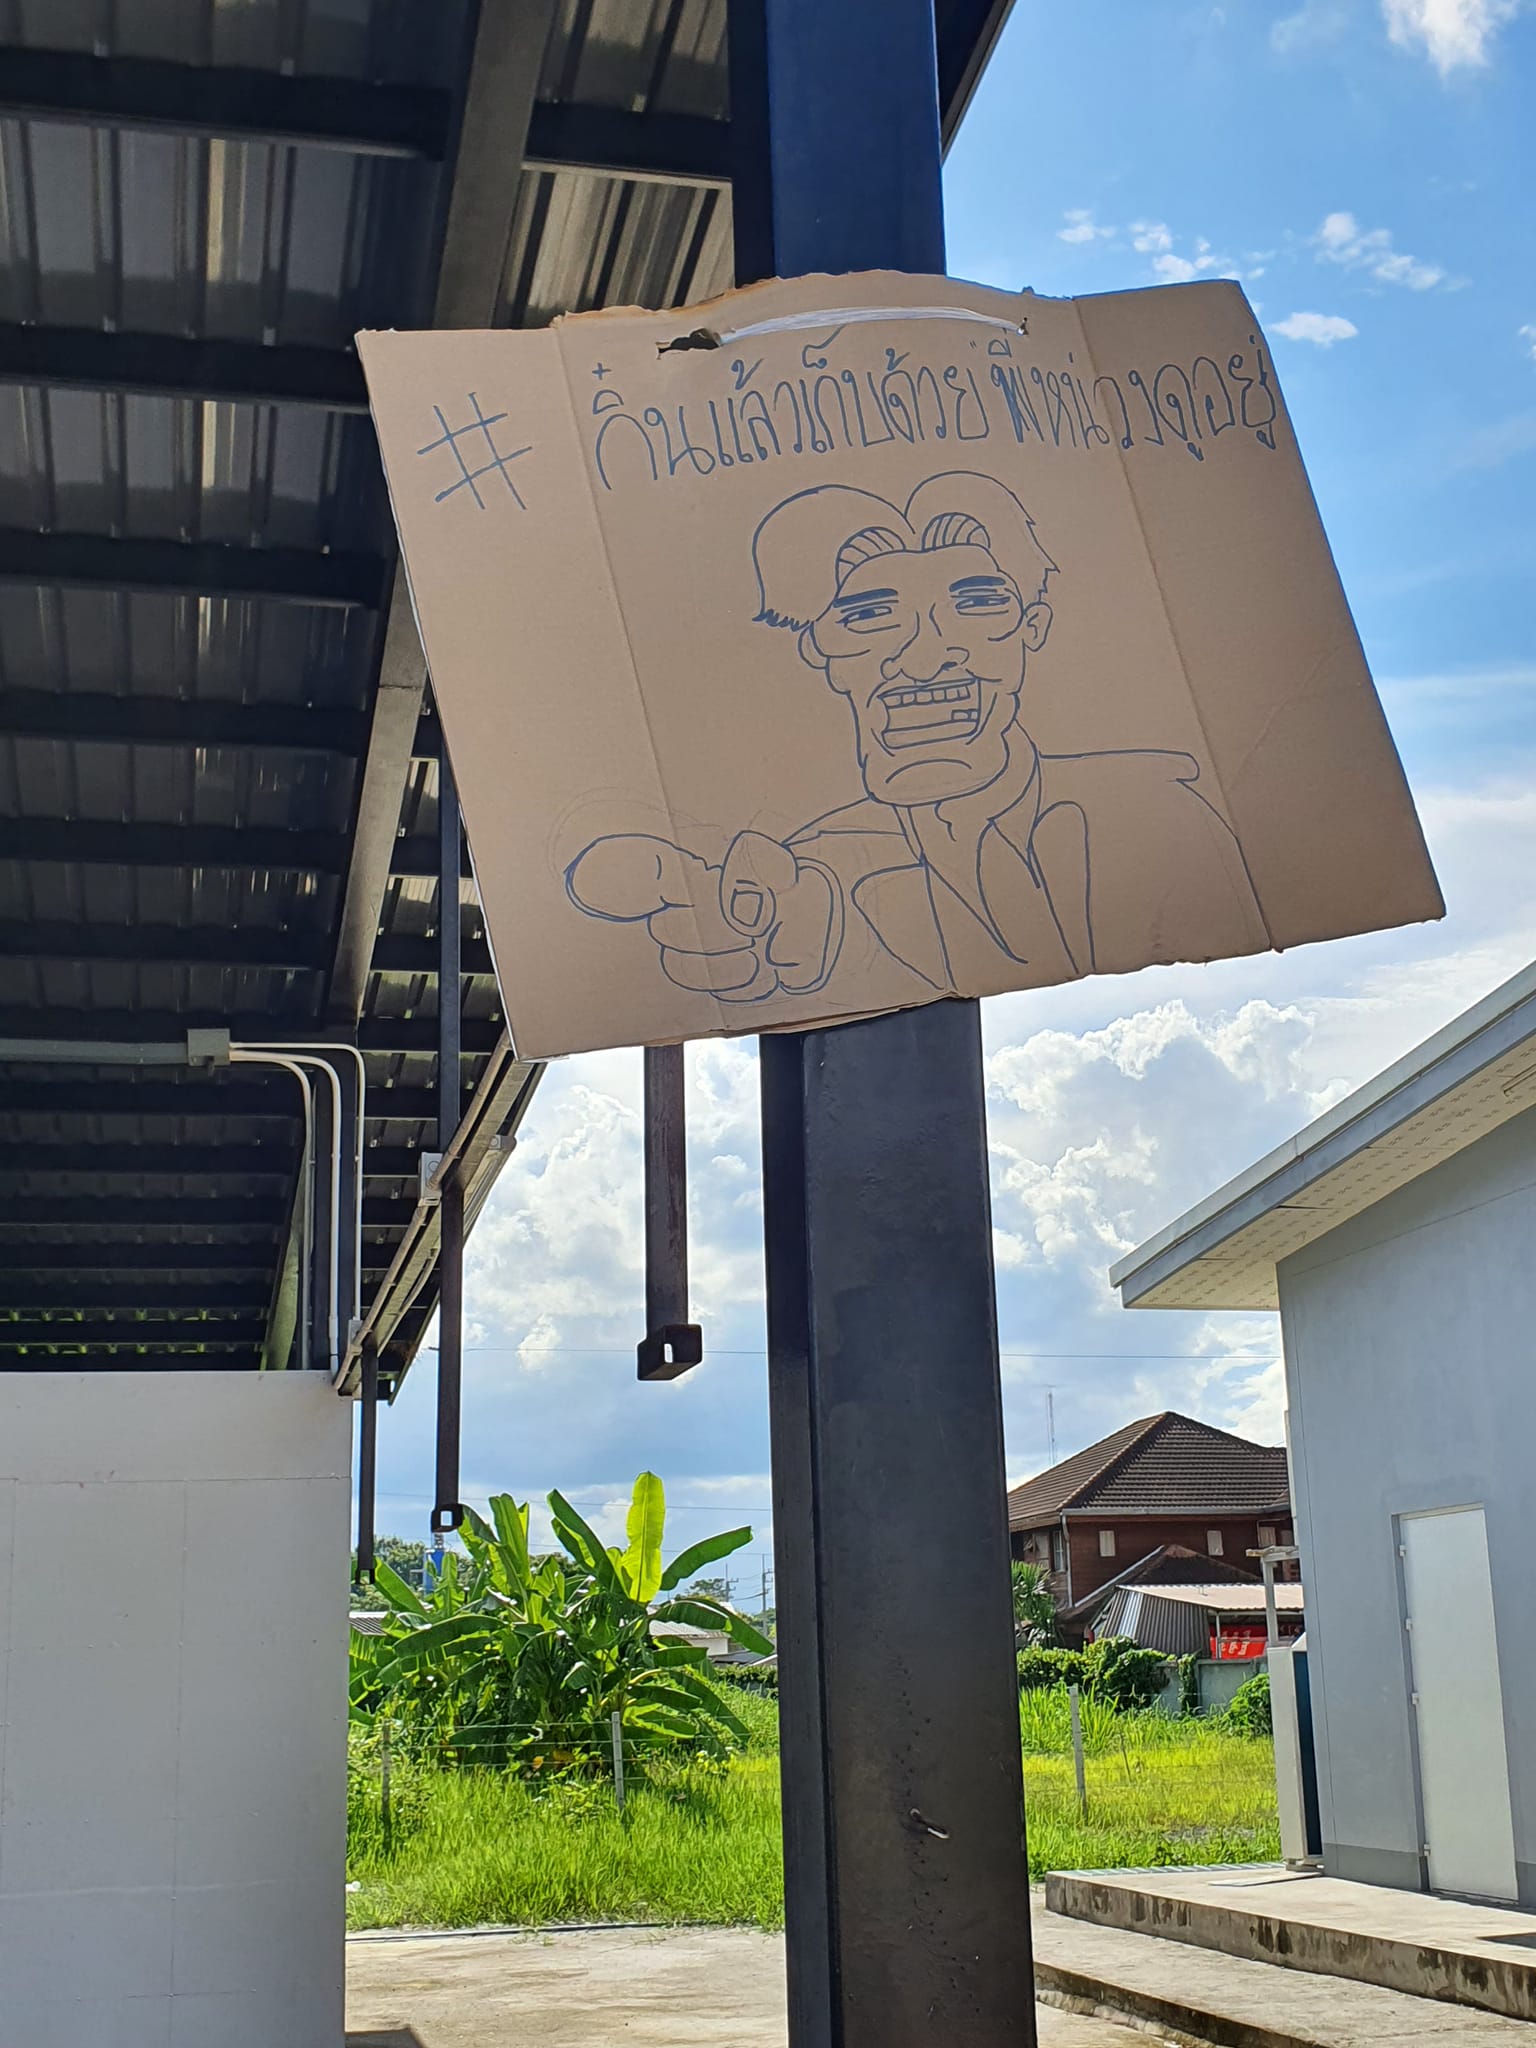 # กิ๋นแล้วเก็บด้วย "พี่หน่วงดูอยู่